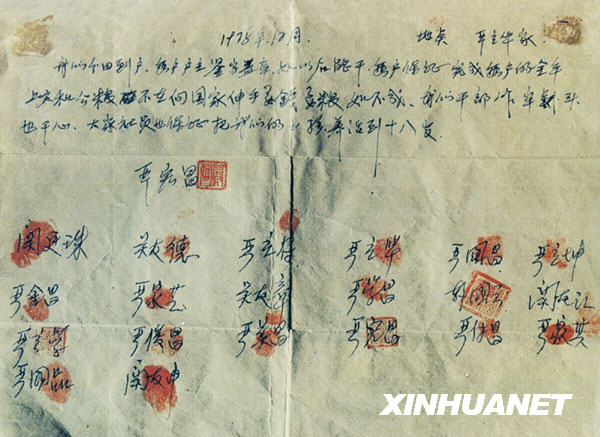 1978年12月. 地点 严立华家.
我们分田到户. 每户户主签字盖章. 如以后能干, 每户保证完成每户的全年
上交和公粮 不在向国家伸手要钱要粮. 如不成, 我们干部作牢刹头
也干心. 大家社员也保证把我们的小孩养活到十八岁.
严宏昌
关廷珠 关友德 严立符 严立华 严国昌 严立坤
严金昌 严家芝 关友章 严学昌 韩国云 关友江
严立学 严俊昌 严美昌 严宏昌 严付昌 严家其
严国品 关友申
XINHUANET